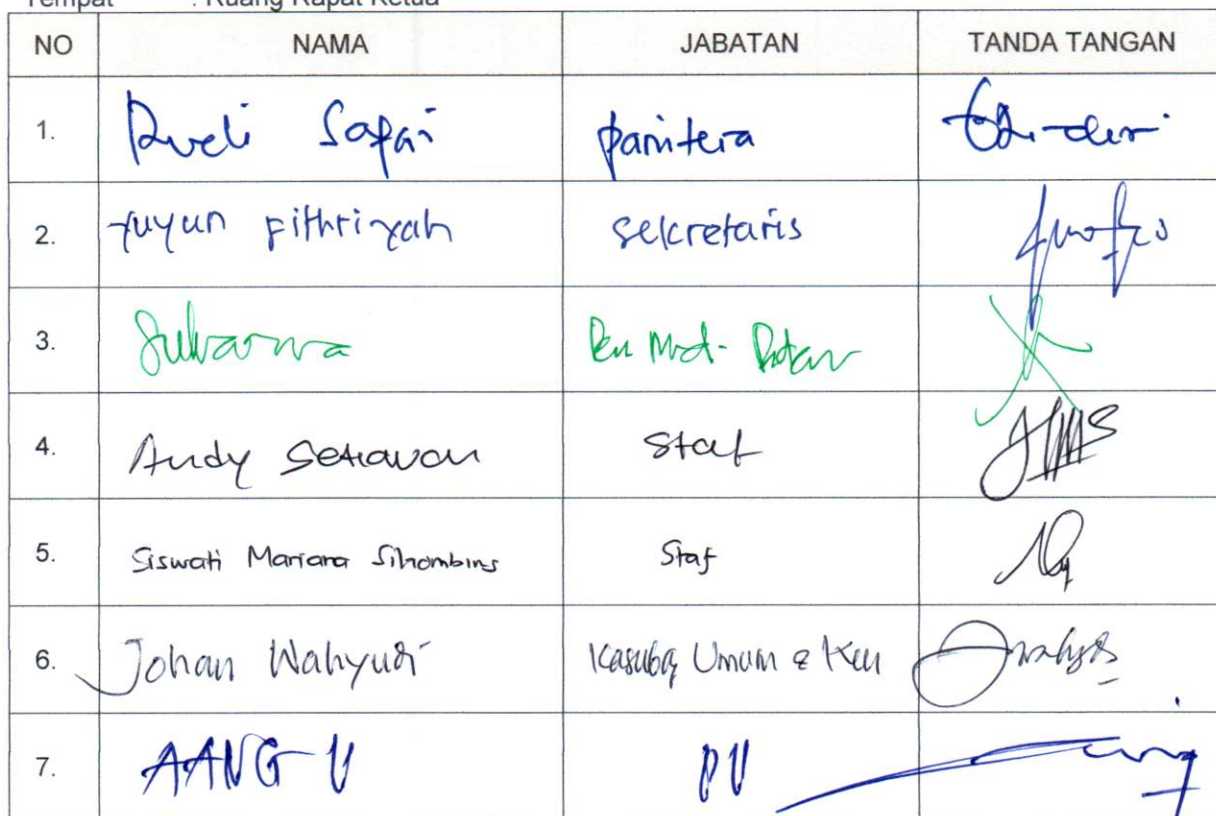 Tempat : Ruang Rapat Ketua
NO NAMA JABATAN TANDA TANGAN
1. Rudi Safari panitera
2. Yuyun Fithriyah sekretaris
3. Sukarna
4. Andy Setiawan Staf
5. Siswati Mariana Sihombing Staf
6. Johan Wahyudi Kasubag Umum & Keu
7. AANG U PU